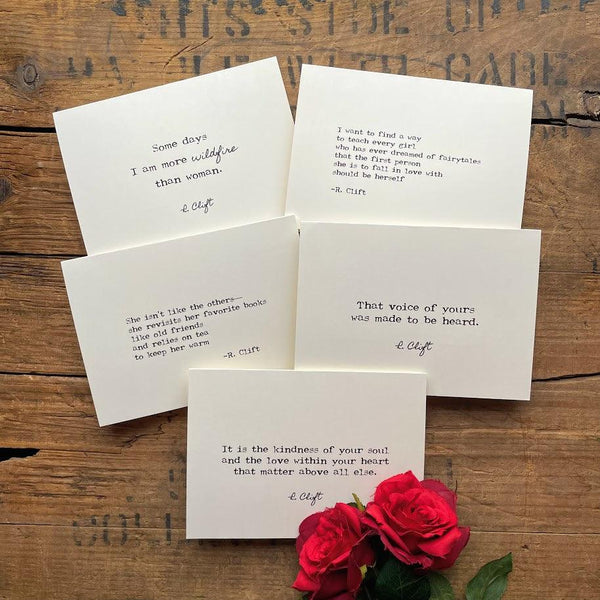 SIDE UP
WITH CARE
Some days
I am more wildfire
than woman.
R. Clift
I want to find a way
to teach every girl
who has ever dreamed of fairytales
that the first person
she is to fall in love with
should be herself
-R. Clift
She isn't like the others—
she revisits her favorite books
like old friends
and relies on tea
to keep her warm
-R. Clift
That voice of yours
was made to be heard.
R. Clift
It is the kindness of your soul
and the love within your heart
that matter above all else.
R. Clift